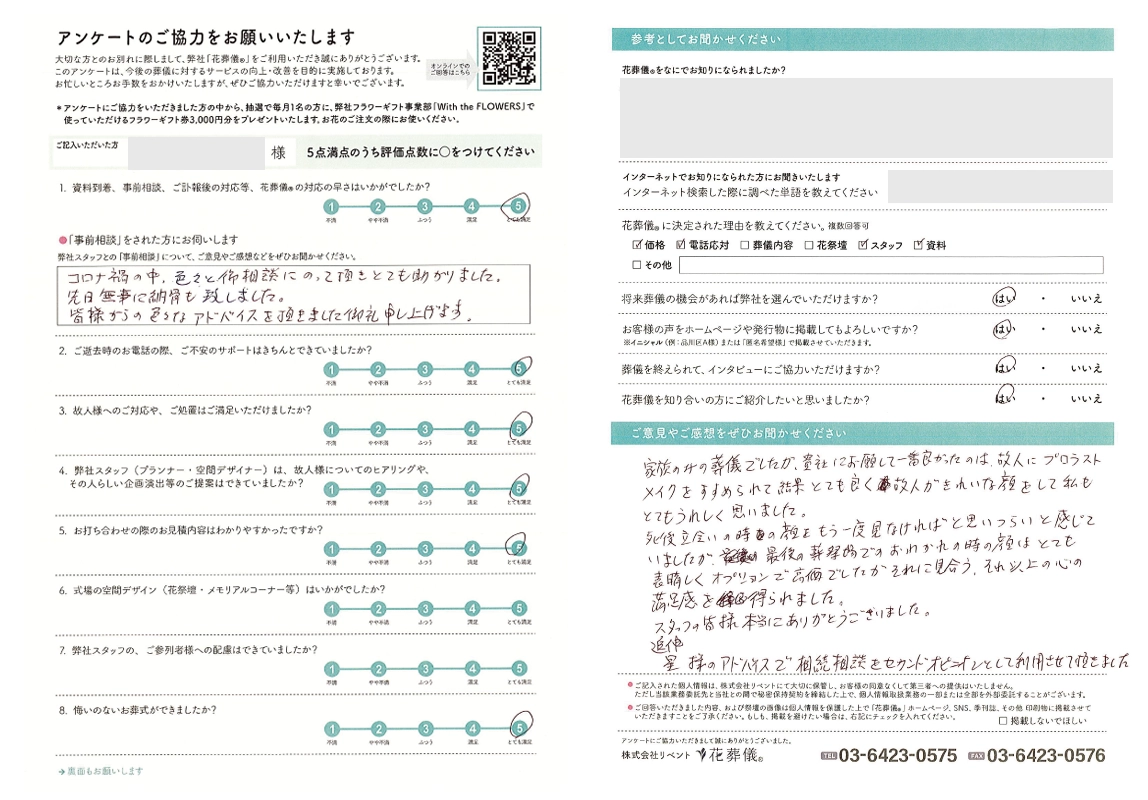 アンケートのご協力をお願いいたします
大切な方とのお別れに際しまして、弊社「花葬儀」をご利用いただき誠にありがとうございます。
このアンケートは、今後の葬儀に対するサービスの向上・改善を目的に実施しております。
お忙しいところお手数をおかけいたしますが、ぜひご協力いただけますと幸いでございます。
オンラインでの
ご回答はこちら
*アンケートにご協力をいただきました方の中から、抽選で毎月1名の方に、弊社フラワーギフト事業部「With the FLOWERS」で
使っていただけるフラワーギフト券3,000円分をプレゼントいたします。お花のご注文の際にお使いください。
ご記入いただいた方 様 5点満点のうち評価点数に○をつけてください
1. 資料到着、事前相談、ご訃報後の対応等、花葬儀®の対応の早さはいかがでしたか?
1 2 3 4 5
不満 やや不満 ふつう 満足 とても満足
●「事前相談」をされた方にお伺いします
弊社スタッフとの「事前相談」について、ご意見やご感想などをぜひお聞かせください。
コロナ禍の中、色々と御相談にのって頂きとても助かりました。
先日無事に納骨も致しました。
皆様からの色々なアドバイスを頂きました御礼申し上げます。
2. ご逝去時のお電話の際、ご不安のサポートはきちんとできていましたか?
1 2 3 4 5
不満 やや不満 ふつう 満足 とても満足
3. 故人様へのご対応や、ご処置はご満足いただけましたか?
1 2 3 4 5
不満 やや不満 ふつう 満足 とても満足
4. 弊社スタッフ(プランナー・空間デザイナー)は、故人様についてのヒアリングや、
その人らしい企画演出等のご提案はできていましたか?
1 2 3 4 5
不満 やや不満 ふつう 満足 とても満足
5. お打ち合わせの際のお見積内容はわかりやすかったですか?
1 2 3 4 5
不満 やや不満 ふつう 満足 とても満足
6. 式場の空間デザイン(花祭壇・メモリアルコーナー等)はいかがでしたか?
1 2 3 4 5
不満 やや不満 ふつう 満足 とても満足
7. 弊社スタッフの、ご参列者様への配慮はできていましたか?
1 2 3 4 5
不満 やや不満 ふつう 満足 とても満足
8. 悔いのないお葬式ができましたか?
1 2 3 4 5
不満 やや不満 ふつう 満足 とても満足
→裏面もお願いします
参考としてお聞かせください
花葬儀®をなにでお知りになられましたか?
インターネットでお知りになられた方にお聞きいたします
インターネット検索した際に調べた単語を教えてください
花葬儀®に決定された理由を教えてください。複数回答可
☑価格 ☑電話応対 □葬儀内容 □花祭壇 ☑スタッフ ☑資料
□その他
将来葬儀の機会があれば弊社を選んでいただけますか? はい ・ いいえ
お客様の声をホームページや発行物に掲載してもよろしいですか? はい ・ いいえ
※イニシャル(例:品川区A様)または「匿名希望様」で掲載させていただきます。
葬儀を終えられて、インタビューにご協力いただけますか? はい ・ いいえ
花葬儀を知り合いの方にご紹介したいと思いましたか? はい ・ いいえ
ご意見やご感想をぜひお聞かせください
家族のみの葬儀でしたが、貴社にお願して一番良かったのは、故人にプロラスト
メイクをすすめられて結果とても良く故人がきれいな顔をして私も
とてもうれしく思いました。
死後立会いの時の顔をもう一度見なければと思いつらいと感じて
いましたが、最後の葬祭場でのおわかれの時の顔はとても
素晴しくオプションで高価でしたがそれに見合う、それ以上の心の
満足感を得られました。
スタッフの皆様本当にありがとうございました。
追伸
星 様のアドバイスで相続相談をセカンドオピニオンとして利用させて頂きました
●ご記入された個人情報は、株式会社リベントにて大切に保管し、お客様の同意なくして第三者への提供はいたしません。
ただし当該業務委託先と当社との間で秘密保持契約を締結した上で、個人情報取扱業務の一部または全部を外部委託することがございます。
●ご回答いただきました内容、および祭壇の画像は個人情報を保護した上で「花葬儀®」ホームページ、SNS、季刊誌、その他 印刷物に掲載させて
いただきますことをご了承ください。もしも、掲載を避けたい場合は、右記にチェックを入れてください。 □掲載しないでほしい
アンケートにご協力いただきまして誠にありがとうございました。
株式会社リベント 花葬儀® TEL 03-6423-0575 FAX 03-6423-0576